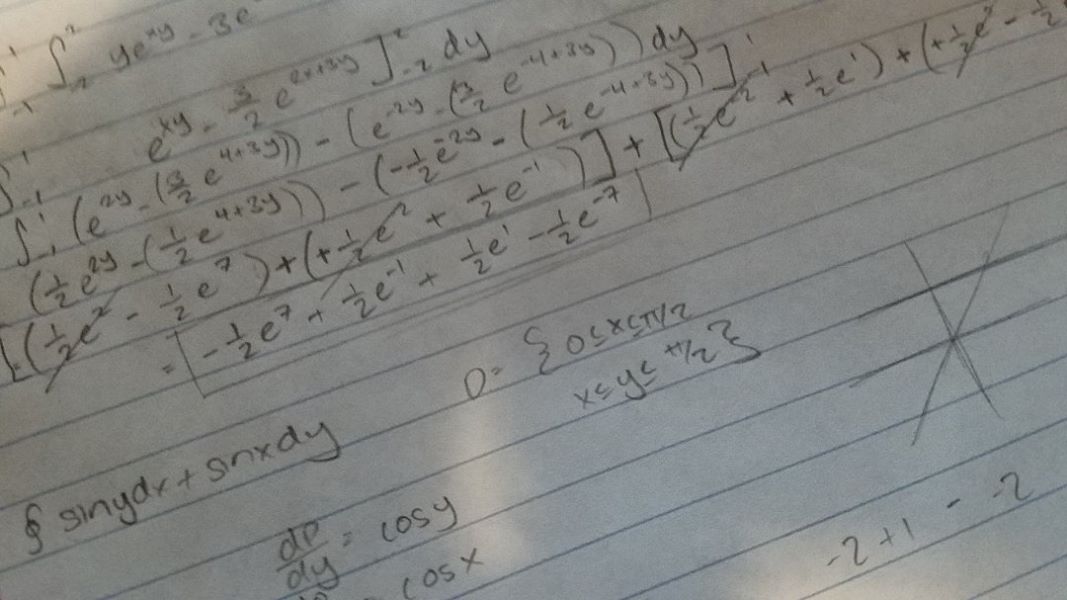 ∫_{-1}^{1} ∫_{-2}^{2} ye^{xy} - 3e
∫_{-1}^{1} e^{xy} - 3/2 e^{2x+3y} ]_{-2}^{2} dy
∫_{-1}^{1} (e^{2y} - (3/2 e^{4+3y})) - (e^{-2y} - (3/2 e^{-4+3y})) dy
(1/2 e^{2y} - (1/2 e^{4+3y})) - (-1/2 e^{-2y} - (1/2 e^{-4+3y})) ]_{-1}^{1}
[(1/2 e^2 - 1/2 e^7) + (+1/2 e^2 + 1/2 e^{-1})] + [(1/2 e^{-2} + 1/2 e^1) + (+1/2 e^2 - 1/2
= -1/2 e^7 + 1/2 e^{-1} + 1/2 e^1 - 1/2 e^{-7}
D = { 0 ≤ x ≤ π/2
x ≤ y ≤ π/2 }
∮ sinydx + sinxdy
dP/dy = cosy
cosx
-2+1 - -2